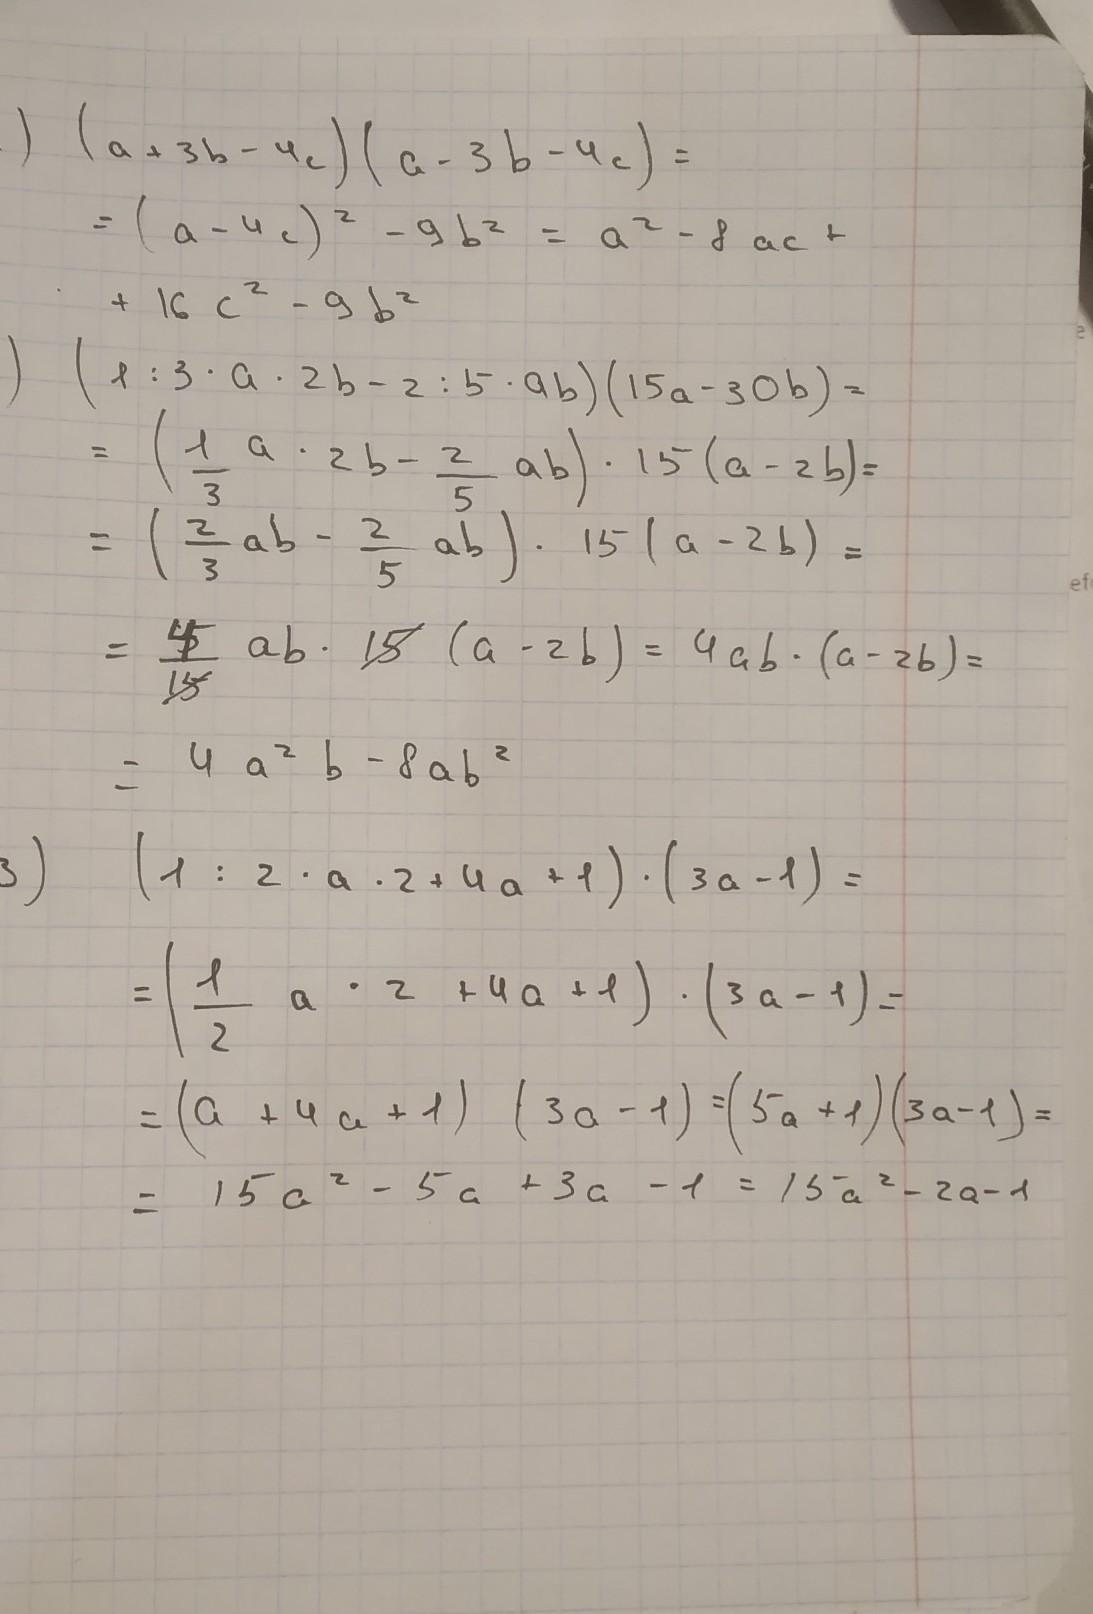 ) (a + 3b - 4c)(a - 3b - 4c) =
= (a - 4c)² - 9b² = a² - 8ac +
+ 16c² - 9b²
) (1 : 3 · a · 2b - 2 : 5 · ab)(15a - 30b) =
= (1/3 a · 2b - 2/5 ab) · 15(a - 2b) =
= (2/3 ab - 2/5 ab) · 15(a - 2b) =
= 4/15 ab · 15 (a - 2b) = 4ab · (a - 2b) =
= 4a²b - 8ab²
3) (1 : 2 · a · 2 + 4a + 1) · (3a - 1) =
= (1/2 a · 2 + 4a + 1) · (3a - 1) =
= (a + 4a + 1) (3a - 1) = (5a + 1)(3a - 1) =
= 15a² - 5a + 3a - 1 = 15a² - 2a - 1